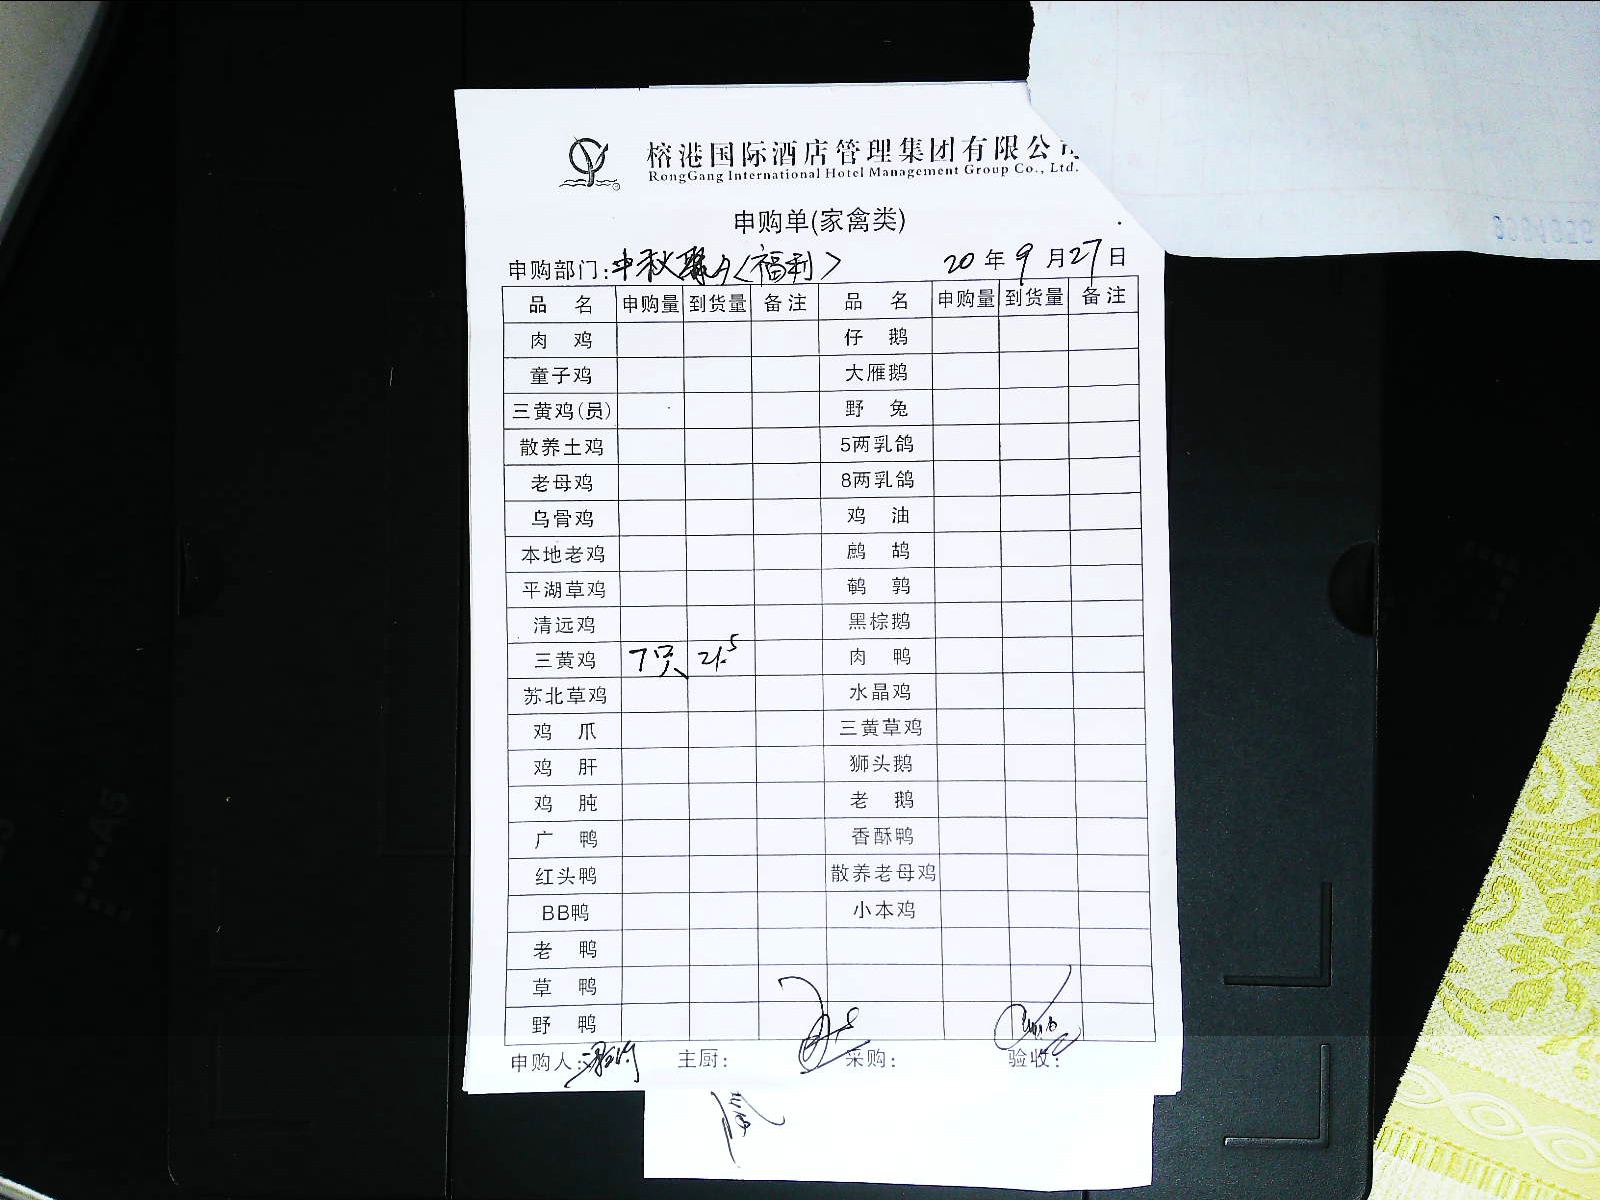 榕港国际酒店管理集团有限公司
RongGang International Hotel Management Group Co., Ltd.
申购单(家禽类)
申购部门:中秋 <福利> 20年9月27日
品 名 申购量 到货量 备注 品 名 申购量 到货量 备注
肉 鸡 仔 鹅
童子鸡 大雁鹅
三黄鸡(员) 野 兔
散养土鸡 5两乳鸽
老母鸡 8两乳鸽
乌骨鸡 鸡 油
本地老鸡 鹧 鸪
平湖草鸡 鹌 鹑
清远鸡 黑棕鹅
三黄鸡 7只 21.5 肉 鸭
苏北草鸡 水晶鸡
鸡 爪 三黄草鸡
鸡 肝 狮头鹅
鸡 肫 老 鹅
广 鸭 香酥鸭
红头鸭 散养老母鸡
BB鸭 小本鸡
老 鸭
草 鸭
野 鸭
申购人: 主厨: 采购: 验收: